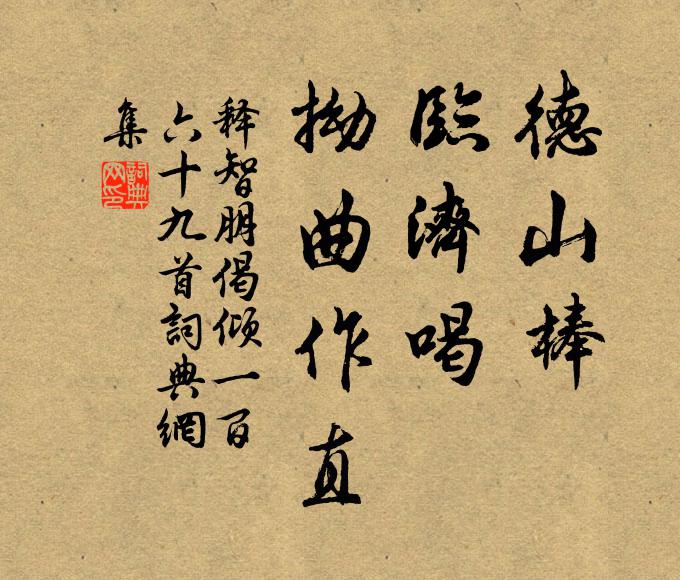 德山棒
臨濟喝
拗曲作直
释智朋偈倾一百
六十九首詞典網
集
詞典
网印